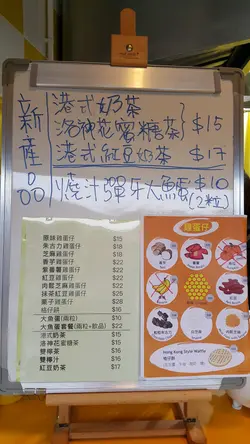 新產品
港式奶茶
洛神花蜜糖茶 $15
港式紅豆奶茶 $17
燒汁彈牙大魚蛋 $10
(2粒)
原味雞蛋仔 $15
朱古力雞蛋仔 $22
芝麻雞蛋仔 $22
香芋雞蛋仔 $22
紫薯蕃雞蛋仔 $22
紅豆雞蛋仔 $22
肉鬆芝麻雞蛋仔 $22
抹茶紅豆雞蛋仔 $28
栗子雞蛋仔 $28
格仔餅 $16
大魚蛋(兩粒) $10
大魚蛋套餐(兩粒+飲品) $22
港式奶茶 $15
洛神花蜜糖茶 $15
雙椰茶 $15
雙椰汁 $22
紅豆奶茶 $17
雞蛋仔
Hong Kong Style Waffle